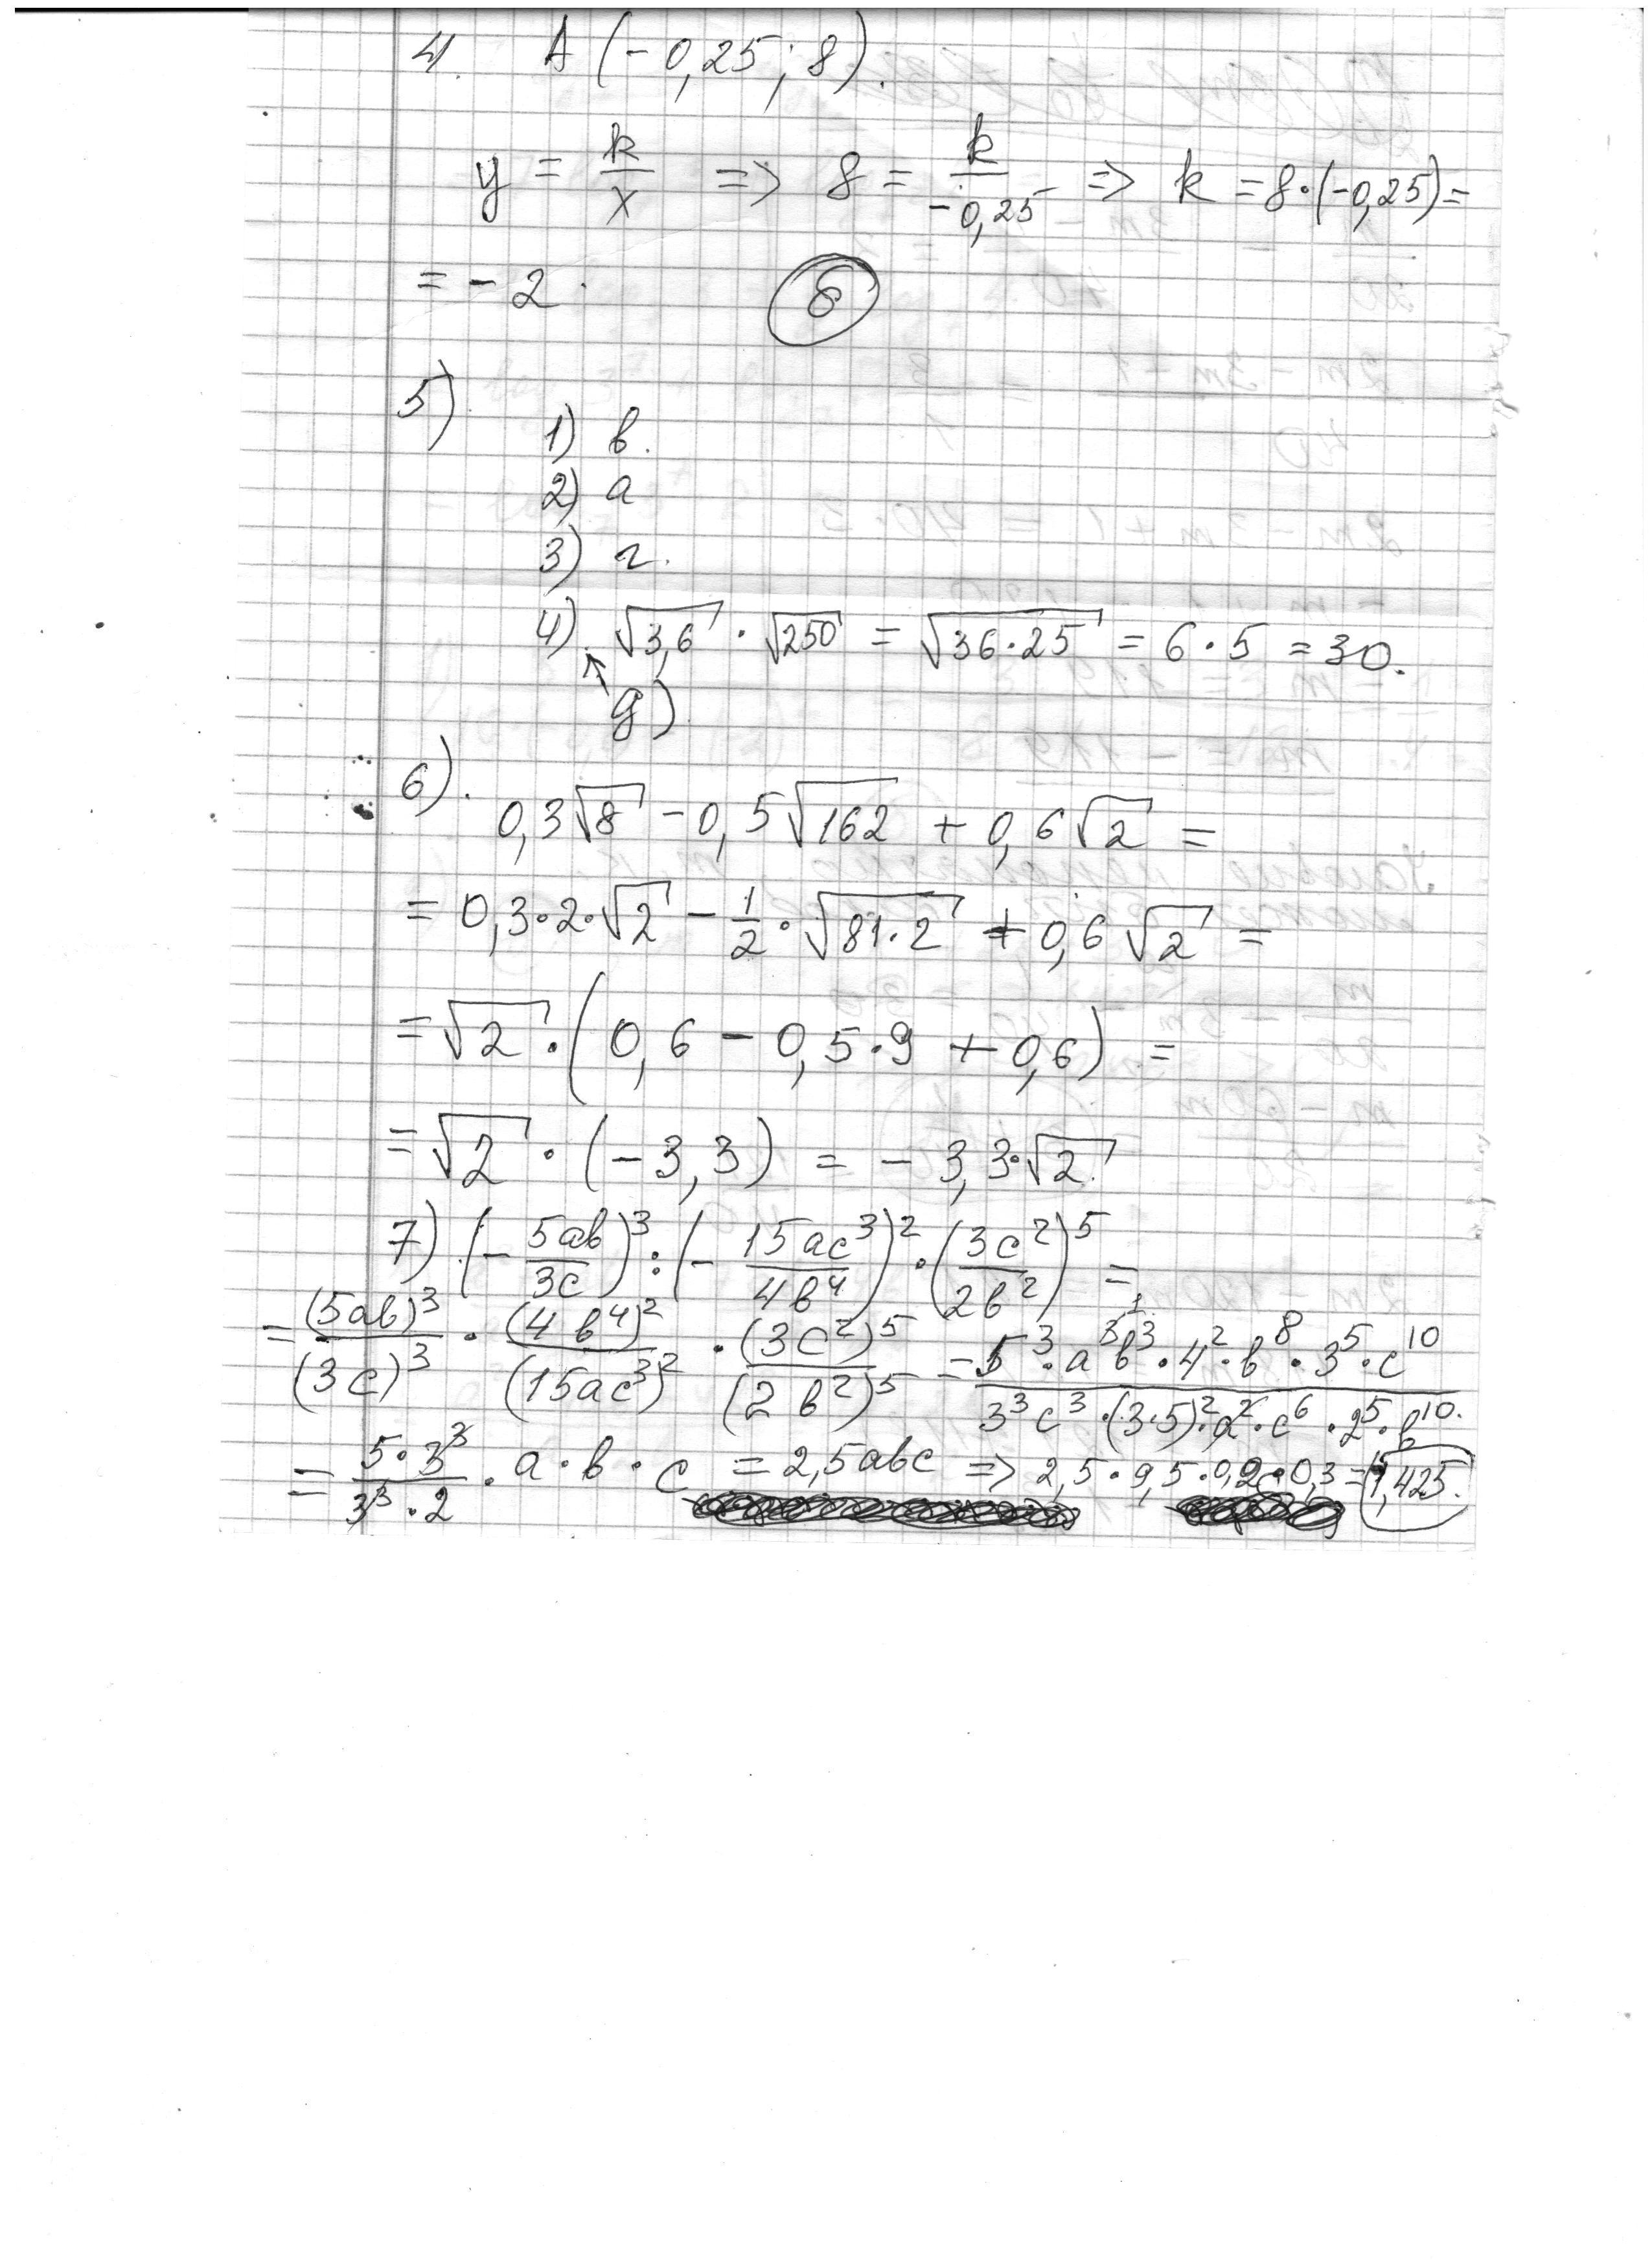 4. A (-0,25; 8).
y = k/x => 8 = k/-0,25 => k = 8·(-0,25) =
= -2.
б
5)
1) в.
2) а
3) г.
4) √3,6 · √250 = √36·25 = 6·5 = 30.
д)
6).
0,3√8 - 0,5√162 + 0,6√2 =
= 0,3·2·√2 - 1/2·√81·2 + 0,6√2 =
= √2·(0,6 - 0,5·9 + 0,6) =
= √2·(-3,3) = -3,3·√2.
7) (-5ab/3c)³ : (-15ac³/4b⁴)² · (3c²/2b²)⁵ =
= (5ab)³/(3c)³ · (4b⁴)²/(15ac³)² · (3c²)⁵/(2b²)⁵ = 5³·a³b³·4²·b⁸·3⁵·c¹⁰/3³c³·(3·5)²·a²·c⁶·2⁵·b¹⁰.
= 5·3³/3³·2 · a·b·c = 2,5abc => 2,5·9,5·0,2·0,3 = 1,425.